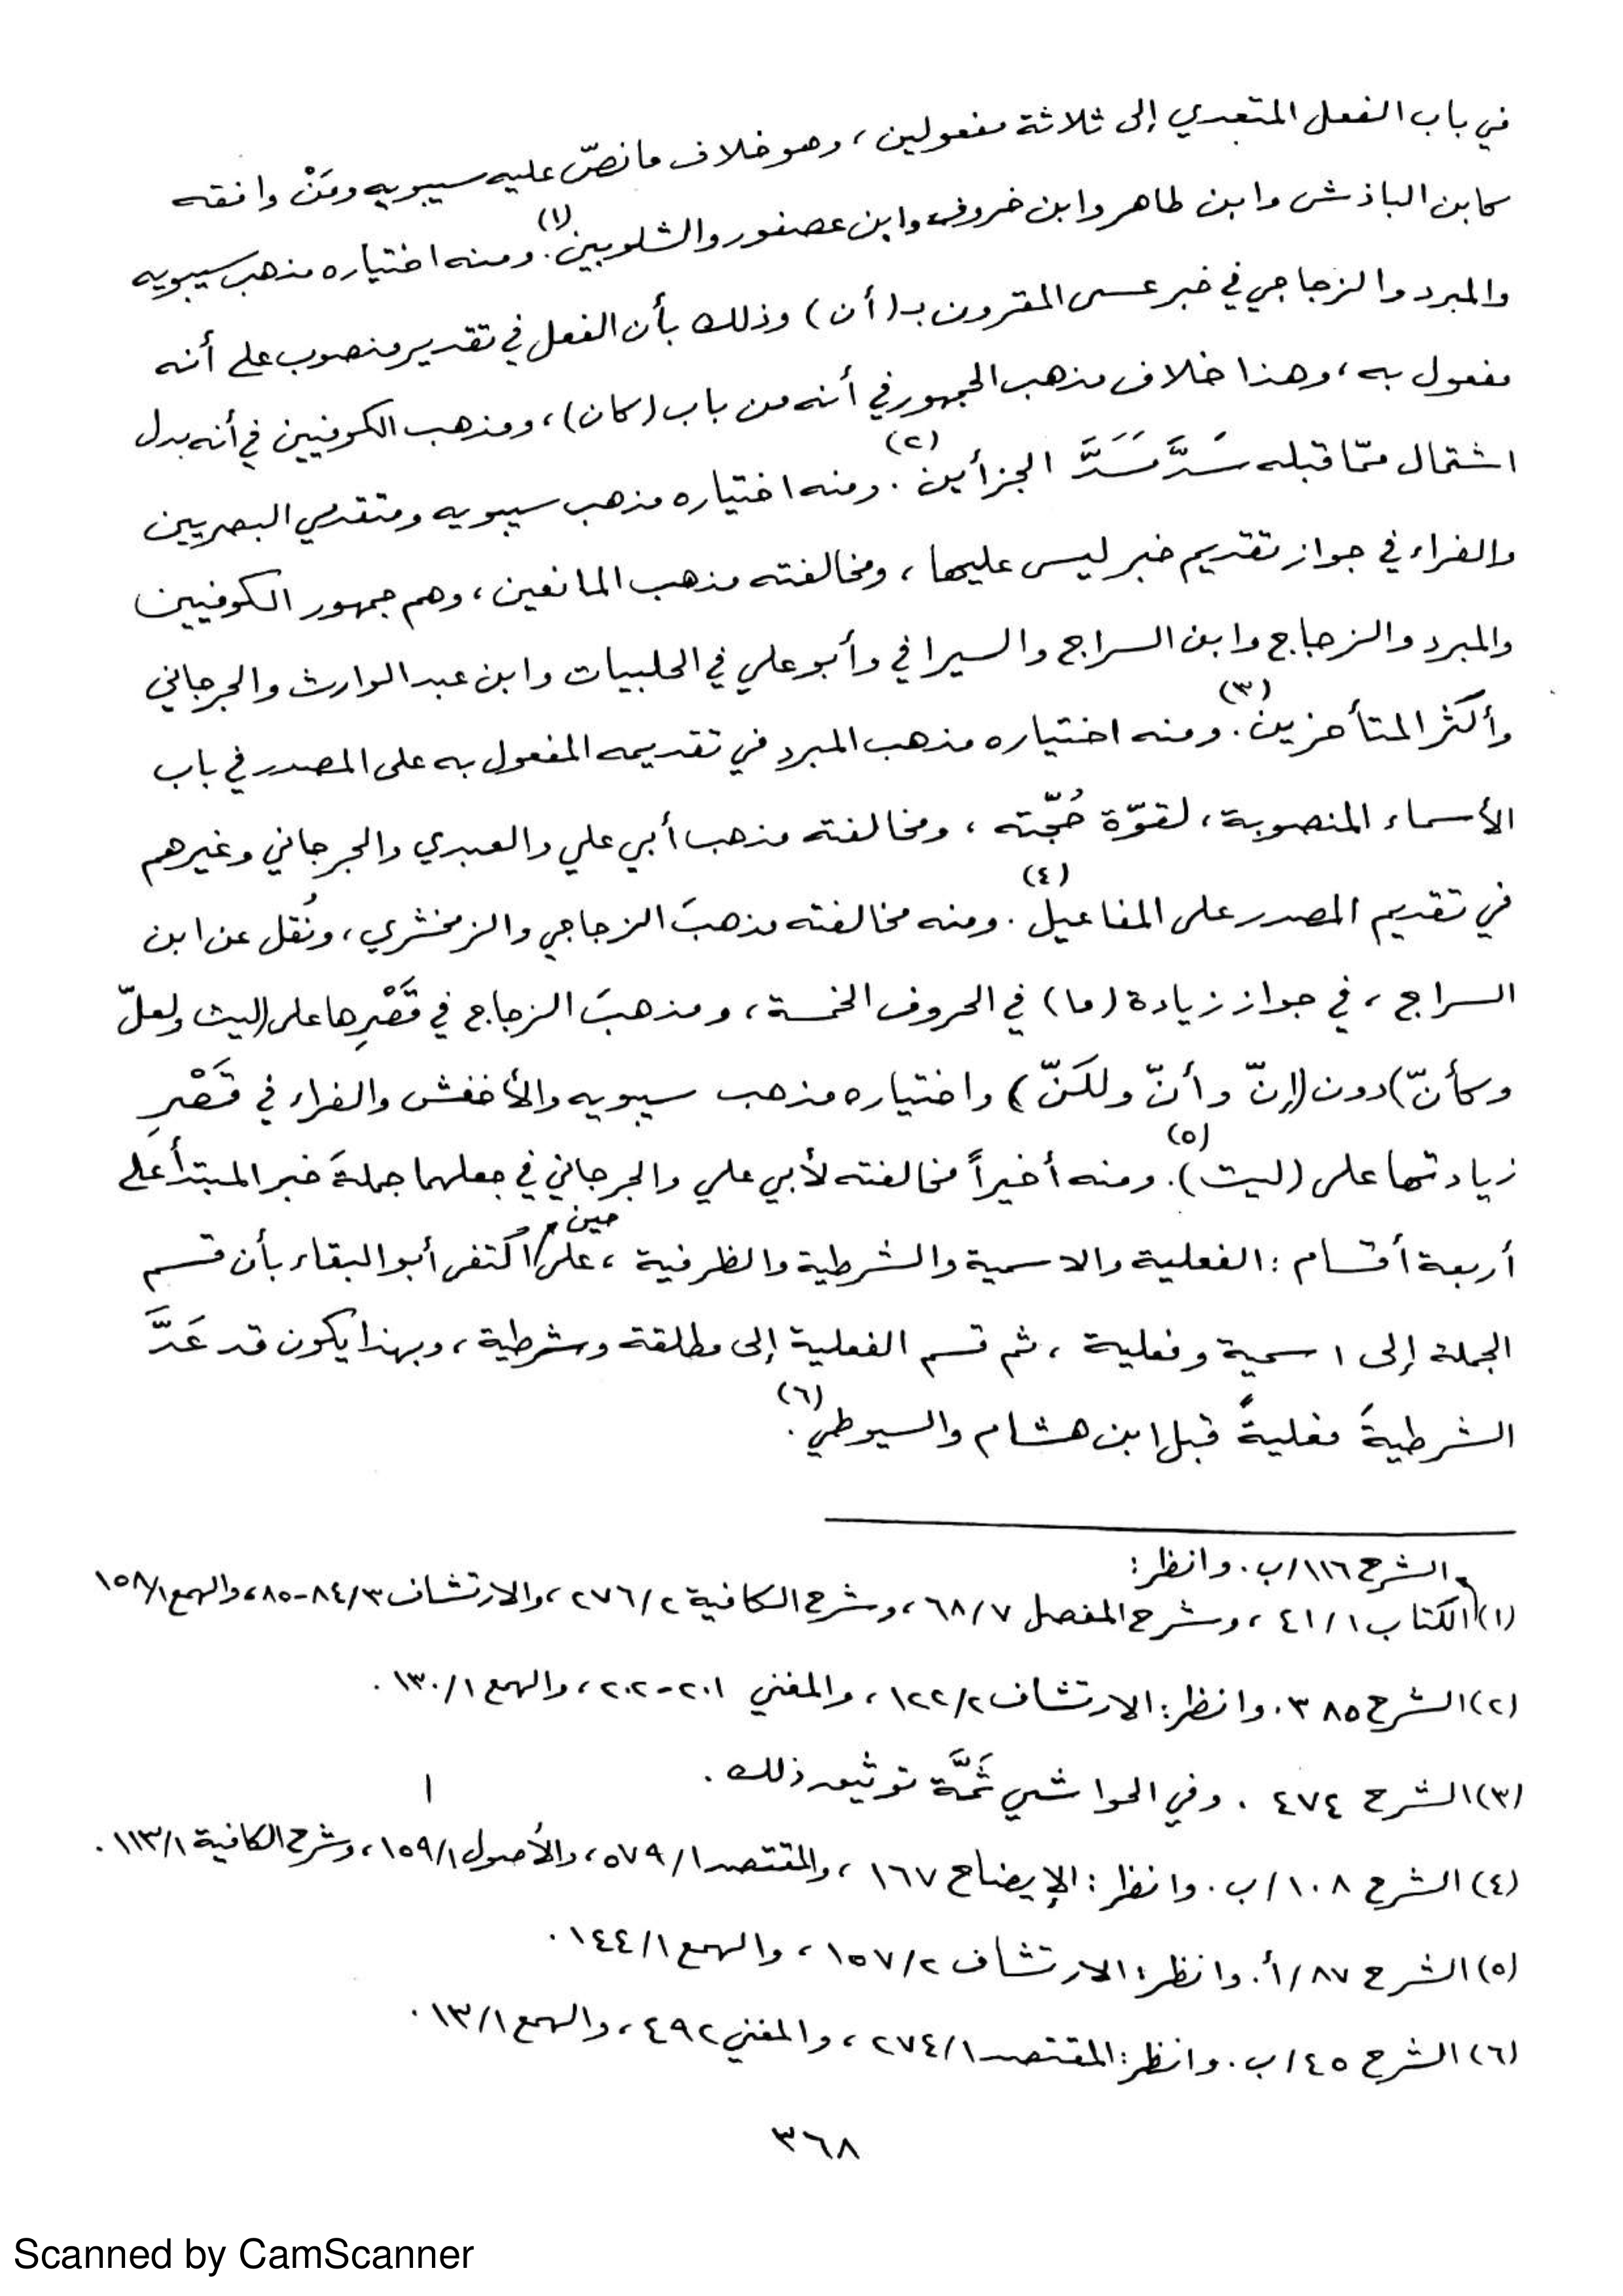 في باب الفعل المتعدي إلى ثلاثة مفعولين، وهو خلاف ما نصّ عليه سيبويه ومَنْ وافقه
كابن الباذش وابن طاهر وابن خروف وابن عصفور والشلوبين(١). ومنه اختياره مذهب سيبويه
والمبرد والزجاجي في خبر عسى المقرون بـ(أن) وذلك بأن الفعل في تقدير منصوب على أنه
مفعول به، وهذا خلاف مذهب الجمهور في أنه من باب (كان)، ومذهب الكوفيين في أنه بدل
اشتمال ممّا قبله سَدَّ مَسَدَّ الجزأين(٢). ومنه اختياره مذهب سيبويه ومتقدمي البصريين
والفراء في جواز تقديم خبر ليس عليها، ومخالفته مذهب المانعين، وهم جمهور الكوفيين
والمبرد والزجاج وابن السراج والسيرافي وأبو علي في الحلبيات وابن عبد الوارث والجرجاني
وأكثر المتأخرين(٣). ومنه اختياره مذهب المبرد في تقديمه المفعول به على المصدر في باب
الأسماء المنصوبة، لقوّة حُجّته، ومخالفته مذهب أبي علي والعبدي والجرجاني وغيرهم
في تقديم المصدر على المفاعيل(٤). ومنه مخالفته مذهبَ الزجاجي والزمخشري، ونُقل عن ابن
السراج، في جواز زيادة (ما) في الحروف الخمسة، ومذهبَ الزجاج في قَصْرِها على (ليت ولعلّ
وكأنّ) دون (إنّ وأنّ ولكنّ) واختياره مذهب سيبويه والأخفش والفراء في قَصْرِ
زيادتها على (ليت)(٥). ومنه أخيراً مخالفته لأبي علي والجرجاني في جعلهما جملةَ خبر المبتدأ على
أربعة أقسام: الفعلية والاسمية والشرطية والظرفية، على حين اكتفى أبو البقاء بأن قسم
الجملة إلى اسمية وفعلية، ثم قسم الفعلية إلى مطلقة وشرطية، وبهذا يكون قد عَدَّ
الشرطيةَ فعليةً قبل ابن هشام والسيوطي(٦).
الشرح ١١٦/ب. وانظر:
(١) الكتاب ٤١/١، وشرح المفصل ٦٨/٧، وشرح الكافية ٢٧٦/٢، والارتشاف ٨٤/٣-٨٥، والهمع ١٥٨/١
(٢) الشرح ٣٨٥. وانظر: الارتشاف ١٢٢/٢، والمغني ٢٠١-٢٠٢، والهمع ١٣٠/١.
(٣) الشرح ٤٧٤. وفي الحواشي ثَمَّة توثيق ذلك.
(٤) الشرح ١٠٨/ب. وانظر: الإيضاح ١٦٧، والمقتصد ٥٧٩/١، والأصول ١٥٩/١، وشرح الكافية ١١٣/١.
(٥) الشرح ٨٧/أ. وانظر: الارتشاف ١٥٧/٢، والهمع ١٤٤/١.
(٦) الشرح ٤٥/ب. وانظر: المقتصد ٢٧٤/١، والمغني ٤٩٢، والهمع ١٣/١.
٣٦٨
Scanned by CamScanner